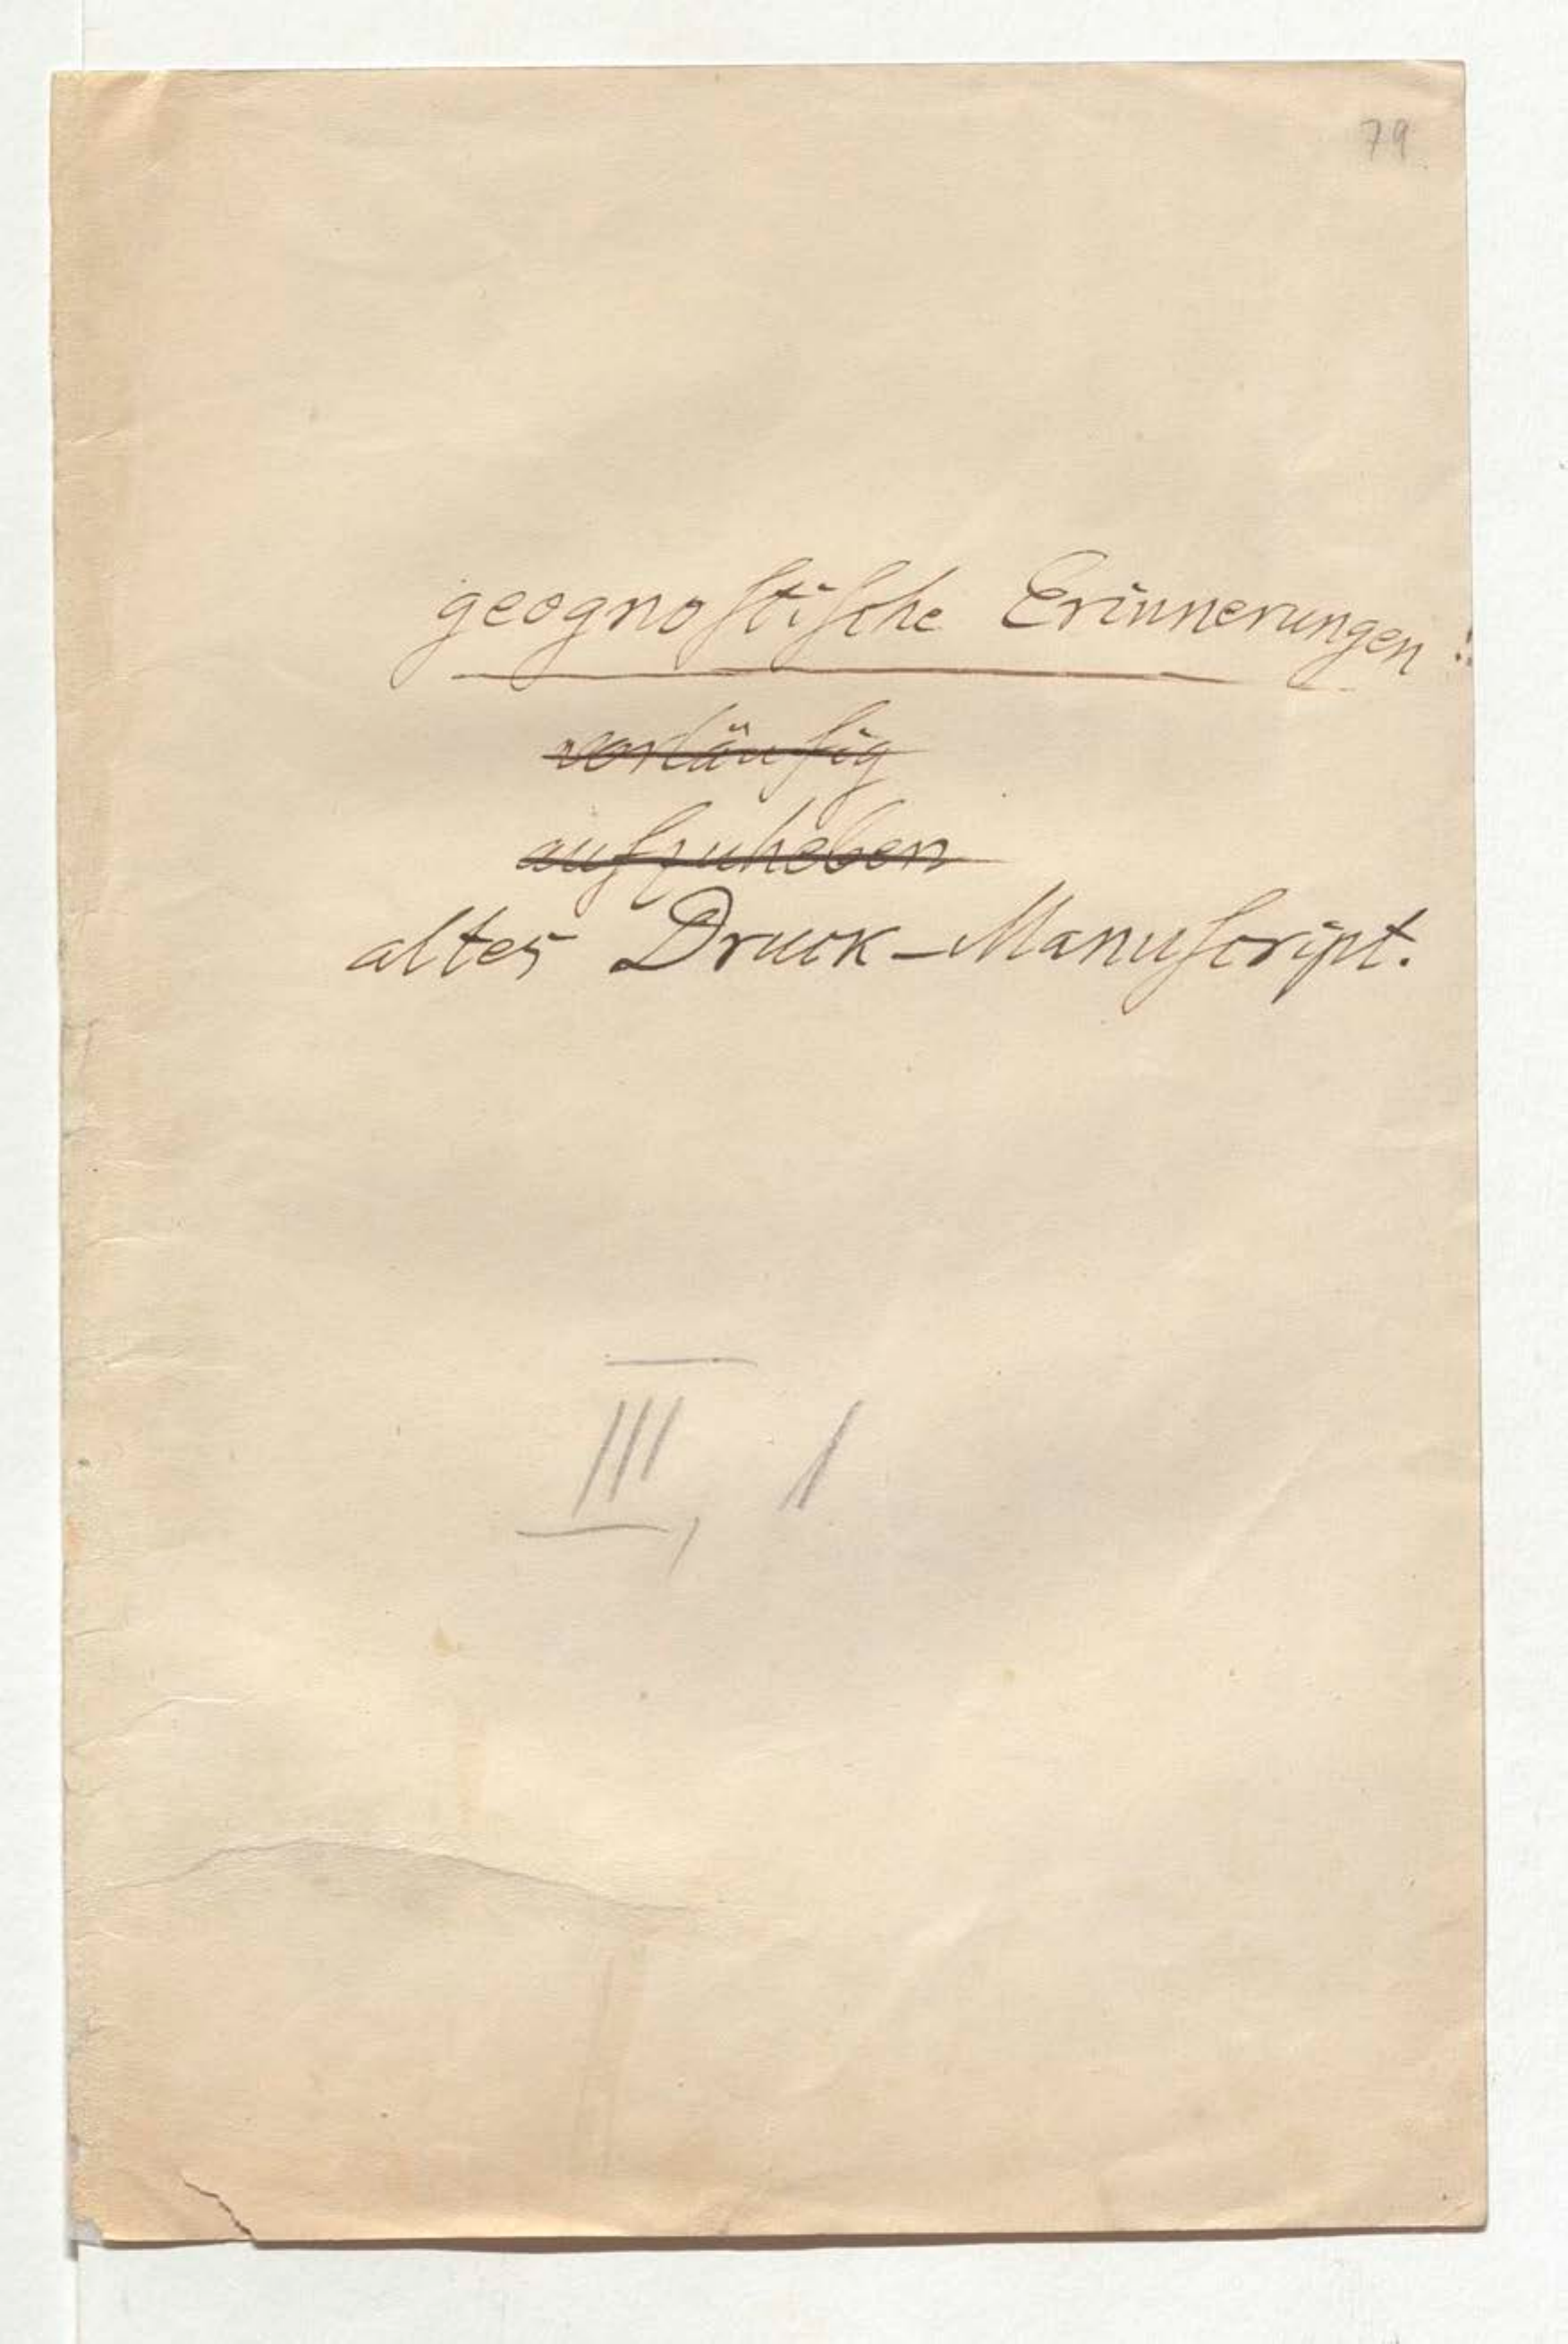 79
geognoſtiſche Erinnerungen!
vorläufig
aufzuheben
altes Druck-Manuſcript.
III, 1